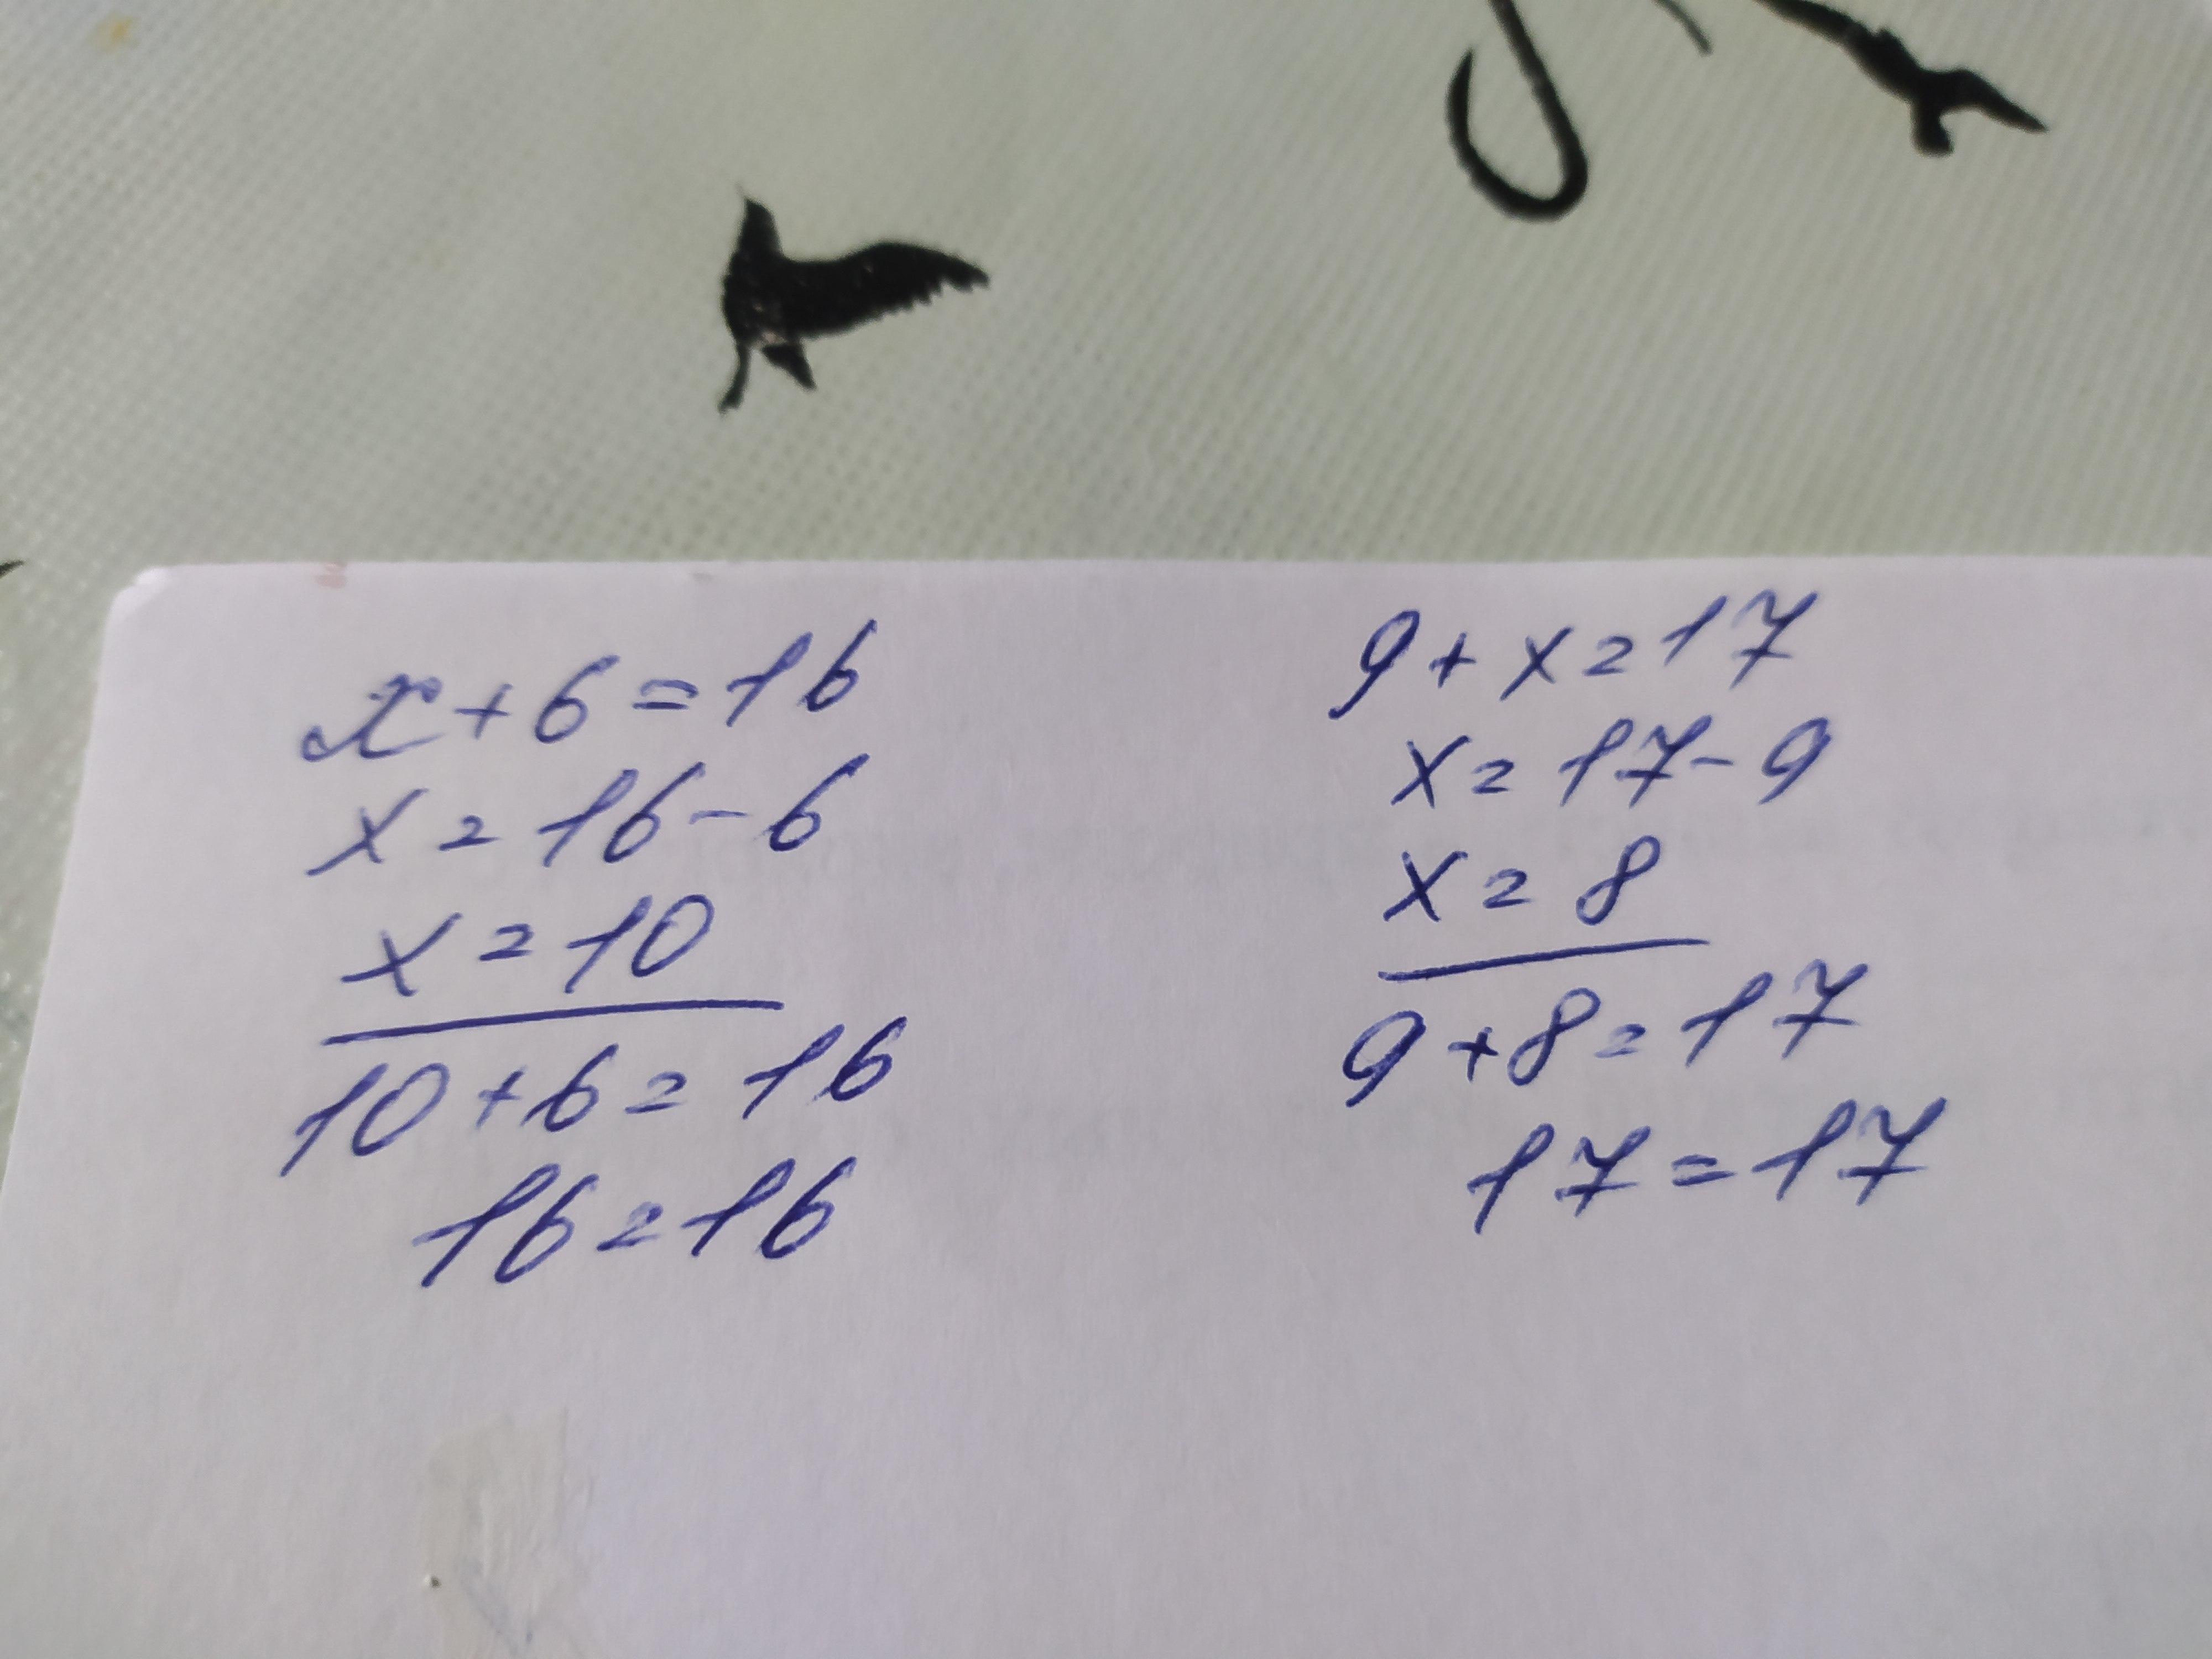 x+6=16
x=16-6
x=10
10+6=16
16=16
9+x=17
x=17-9
x=8
9+8=17
17=17